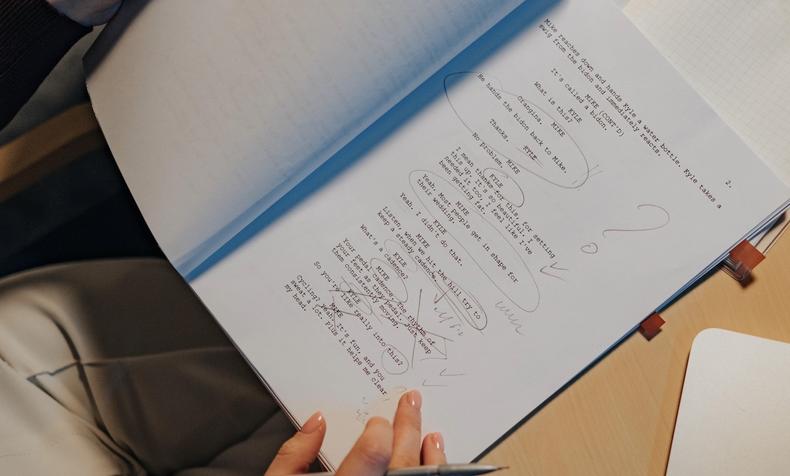 2.
Mike reaches down and hands Kyle a water bottle. Kyle takes a
swig from the bidon and immediately reacts.
MIKE (CONT'D)
It's called a bidon.
KYLE
What is this?
MIKE
Orangina.
He hands the bidon back to Mike.
KYLE
Thanks.
MIKE
No problem.
KYLE
I mean thanks for this, for setting
this up. It's so beautiful. I
needed it too, I feel like I've
been getting fat.
MIKE
Yeah. Most people get in shape for
their wedding.
KYLE
Yeah, I didn't do that.
MIKE
Listen, when we hit the hill try to
keep a steady cadence.
KYLE
What's a cadence?
MIKE
Your pedal cadence. The rhythm of
your feet as they pedal. Just keep
them consistently moving.
KYLE
So you're like really into this?
MIKE
Cycling? Yeah, it's fun, and you
sweat a lot. Plus it helps me clear
my head.